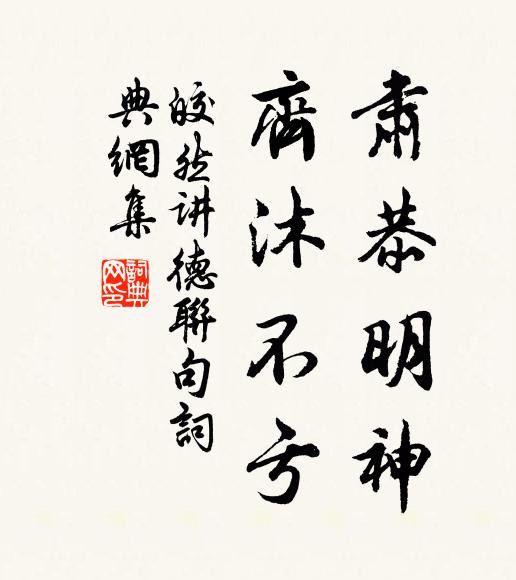 肅恭明神
齊沐不亏
皎然讲德聯句詞
典網集
詞典
网印